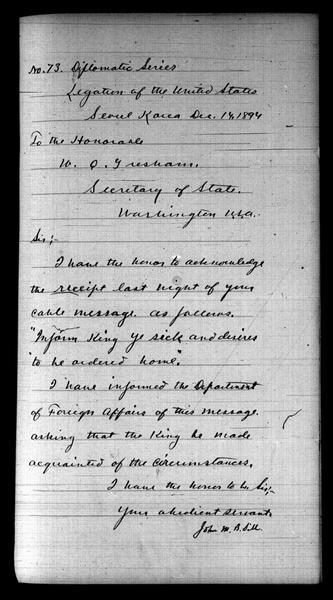 No. 73. Diplomatic Series
Legation of the United States
Seoul Korea Dec. 14, 1894
To the Honorable
W. Q. Gresham,
Secretary of State.
Washington U.S.A.
Sir;-
I have the honor to acknowledge
the receipt last night of your
cable message. as follows.
"Inform King Ye sick and desires
"to be ordered home".
I have informed the Department
of Foreign Affairs of this message.
asking that the King be made
acquainted of the circumstances.
I have the honor to be Sir,-
Your obedient servant
John M. B. Sill.